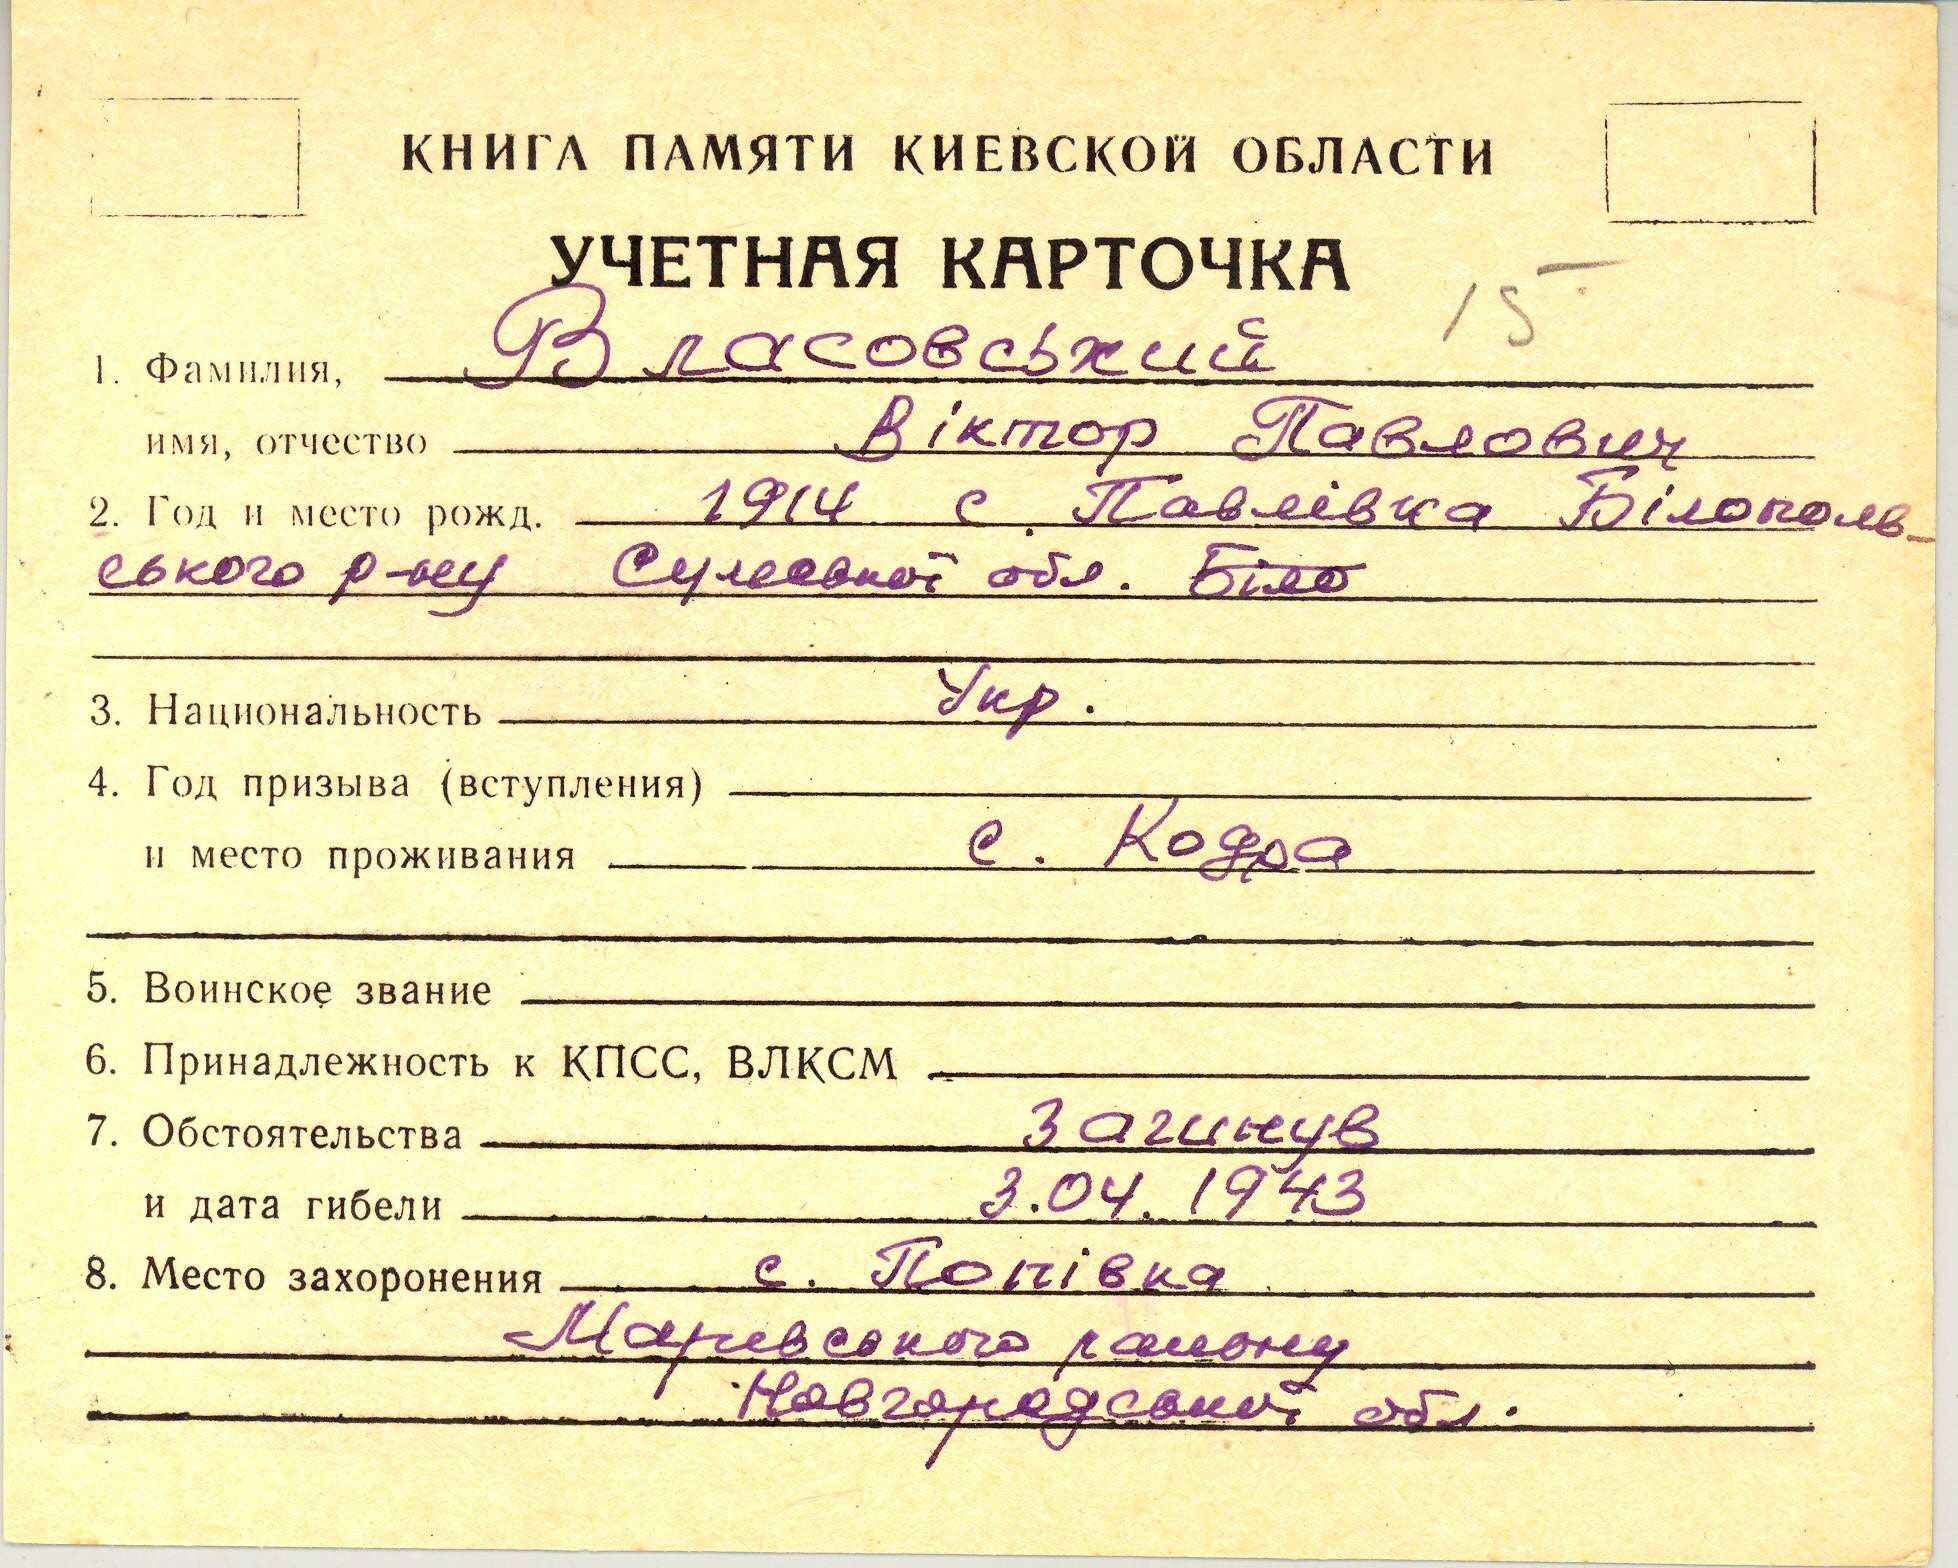 КНИГА ПАМЯТИ КИЕВСКОЙ ОБЛАСТИ
УЧЕТНАЯ КАРТОЧКА
15
1. Фамилия, Власовський
имя, отчество Віктор Павлович
2. Год и место рожд. 1914 с. Павлівка Білополь-
ського р-ну Сумської обл. Біло
3. Национальность Укр.
4. Год призыва (вступления)
и место проживания с. Кодра
5. Воинское звание
6. Принадлежность к КПСС, ВЛКСМ
7. Обстоятельства Загинув
и дата гибели 3.04.1943
8. Место захоронения с. Попівка
Марівського району
Новгородської обл.